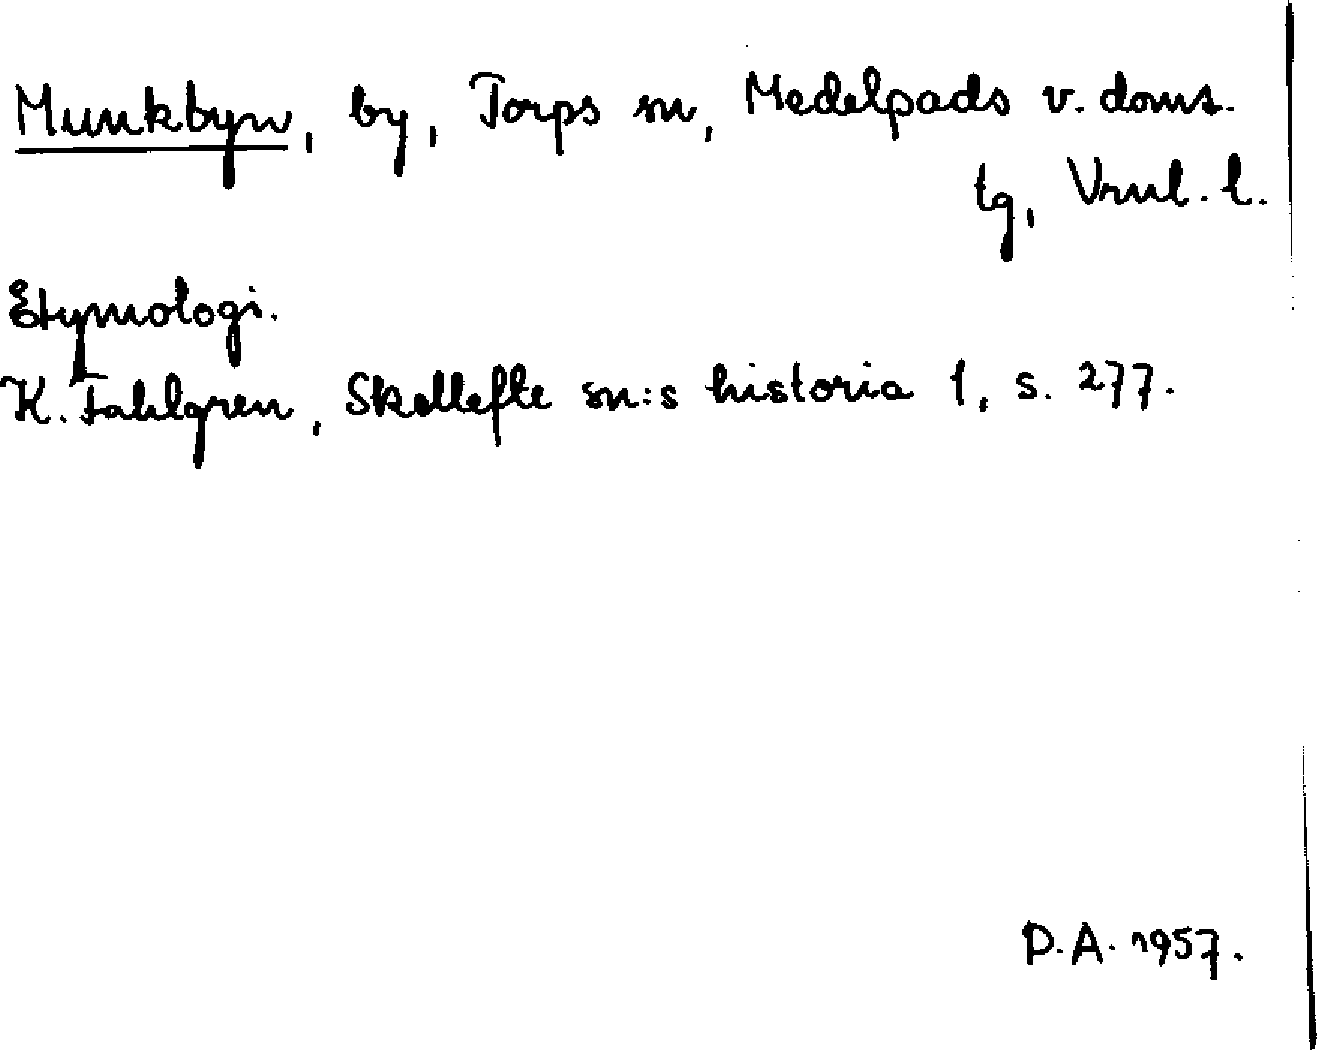 Munkbyn, by, Torps sn, Medelpads v. doms.
tg, Vrnl. l.
Etymologi.
K. Fahlgren, Skellefte sn:s historia 1, s. 277.
D.A. 1957.